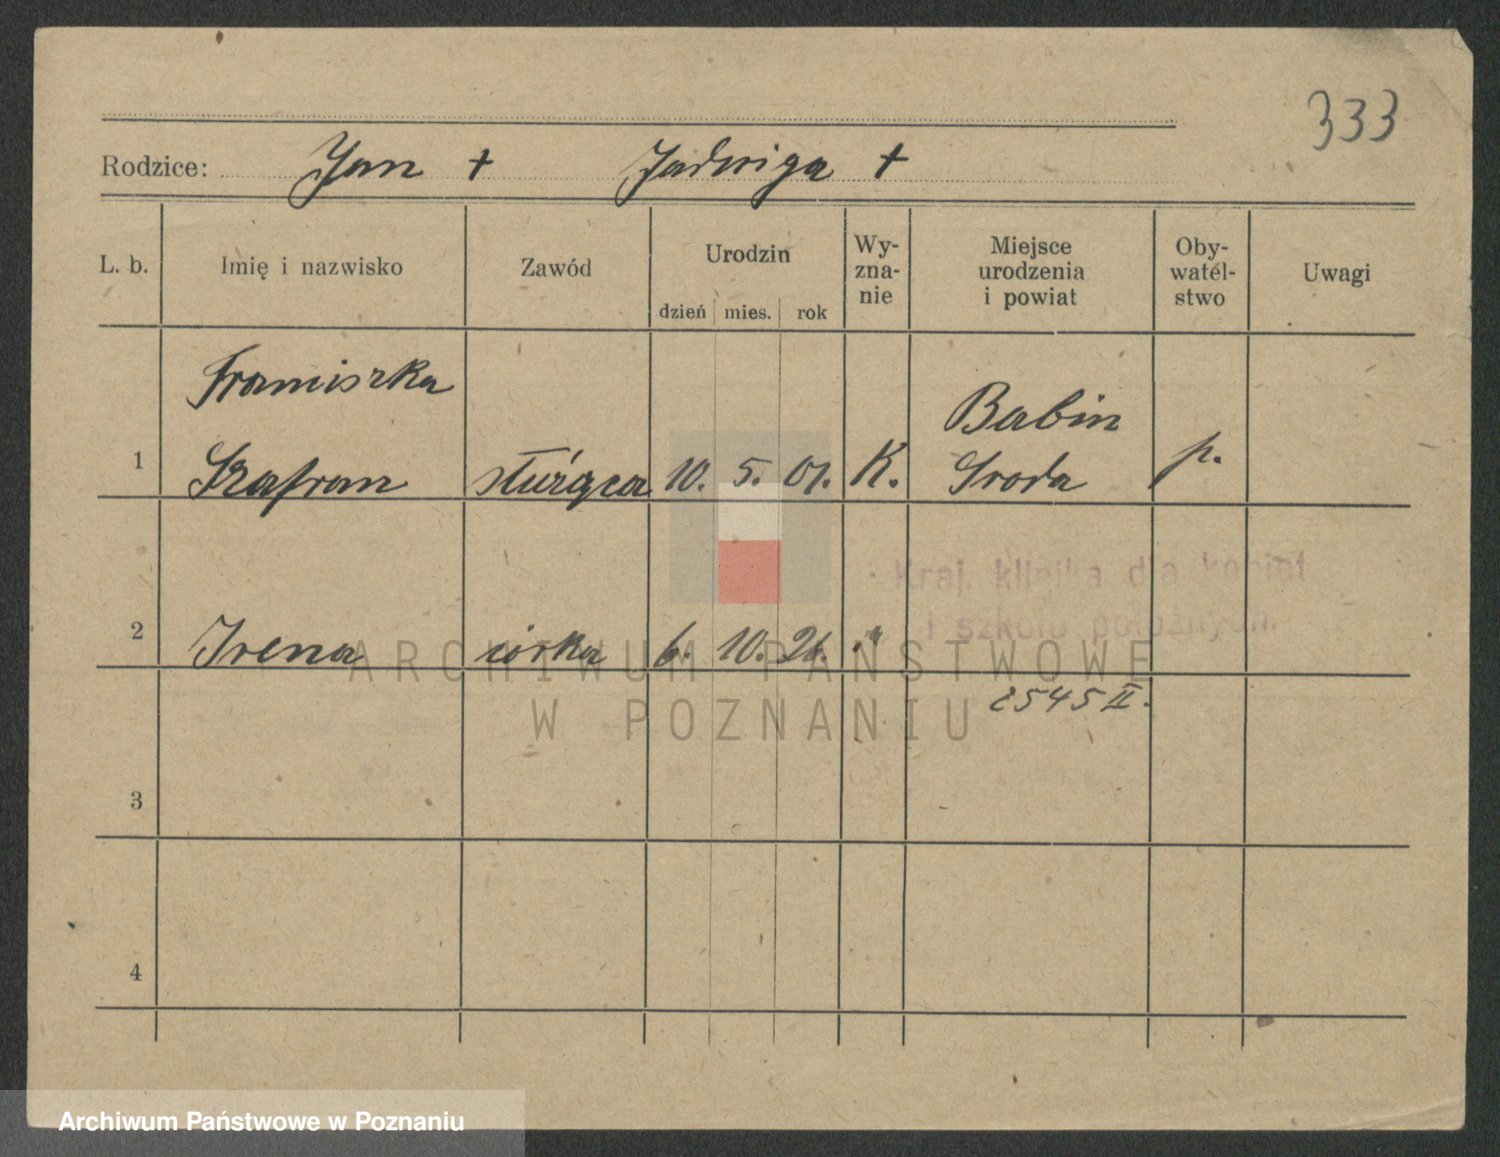 333
Rodzice: Jan + Jadwiga +
L. b. Imię i nazwisko Zawód Urodzin dzień mies. rok Wy-zna-nie Miejsce urodzenia i powiat Oby-watel-stwo Uwagi
Franciszka
Babin
1 Szafran służąca 10. 5. 01. K. Środa p.
Kraj. klinika dla kobiet
i szkoła położnych.
2 Irena córka 6. 10. 26. "
2545 II.
ARCHIWUM PAŃSTWOWE
W POZNANIU
3
4
Archiwum Państwowe w Poznaniu